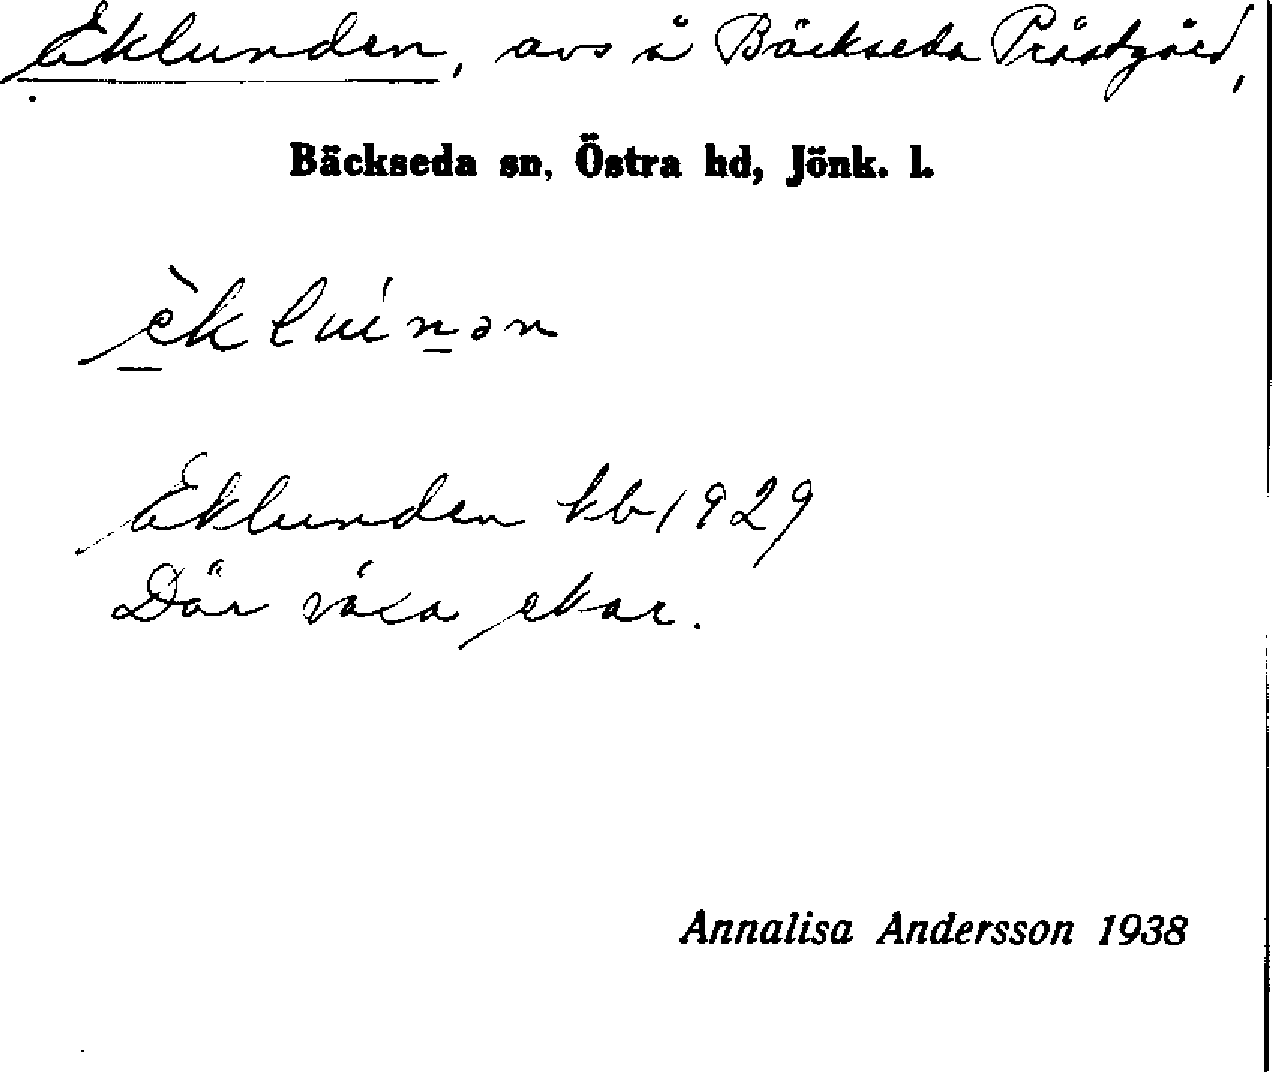 Eklunden, avs å Bäckseda Prästgård,
Bäckseda sn, Östra hd, Jönk. l.
Eklunden kb 1929
Där växa ekar.
Annalisa Andersson 1938